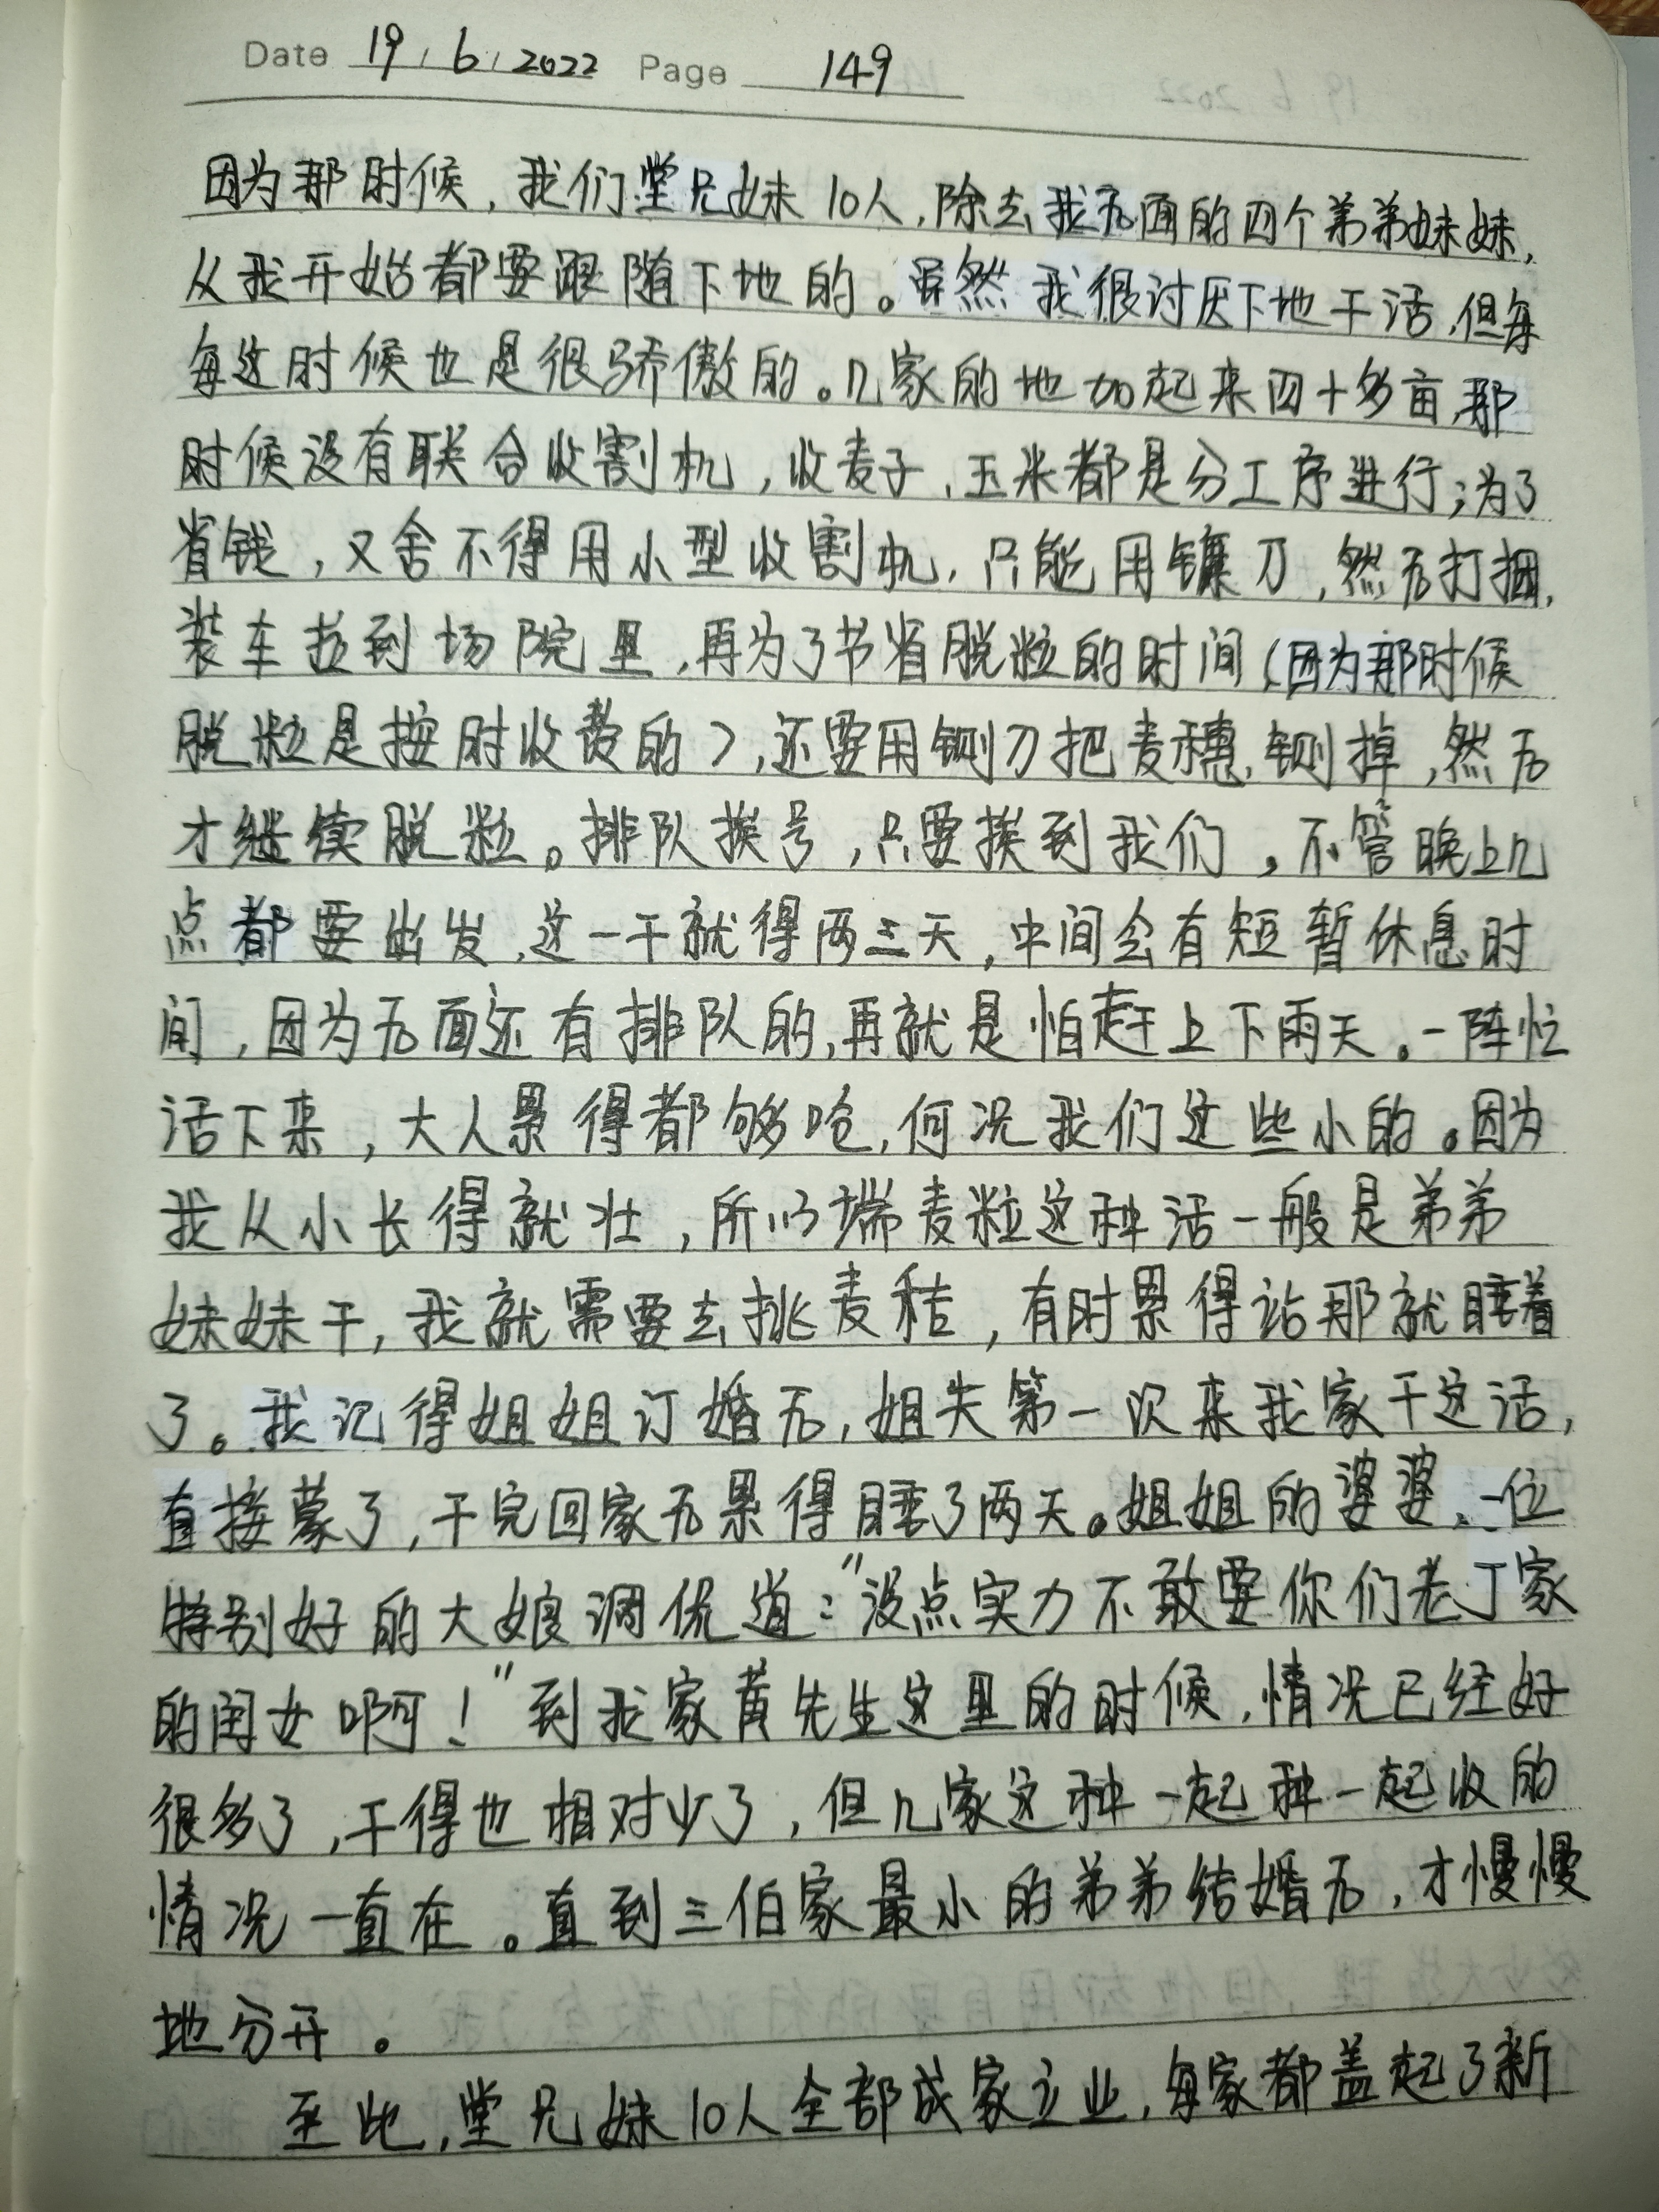 Date 19/6/2022 Page 149
因为那时候，我们堂兄妹10人，除去我后面的四个弟弟妹妹，
从我开始都要跟随下地的。虽然我很讨厌下地干活，但每
每这时候也是很骄傲的。几家的地加起来四十多亩，那
时候没有联合收割机，收麦子、玉米都是分工序进行；为了
省钱，又舍不得用小型收割机，只能用镰刀，然后打捆，
装车拉到场院里，再为了节省脱粒的时间（因为那时候
脱粒是按时收费的），还要用铡刀把麦穗铡掉，然后
才继续脱粒。排队挨号，只要挨到我们，不管晚上几
点都要出发，这一干就得两三天，中间会有短暂休息时
间，因为后面还有排队的，再就是怕赶上下雨天。一阵忙
活下来，大人累得都够呛，何况我们这些小的。因为
我从小长得就壮，所以端麦粒这种活一般是弟弟
妹妹干，我就需要去挑麦秸，有时累得站那就睡着
了。我记得姐姐订婚后，姐夫第一次来我家干这活，
直接蒙了，干完回家后累得睡了两天。姐姐的婆婆，一位
特别好的大娘调侃道：“没点实力不敢要你们老丁家
的闺女啊！”到我家黄先生这里的时候，情况已经好
很多了，干得也相对少了，但几家这种一起种一起收的
情况一直在。直到三伯家最小的弟弟结婚后，才慢慢
地分开。
至此，堂兄妹10人全部成家立业，每家都盖起了新